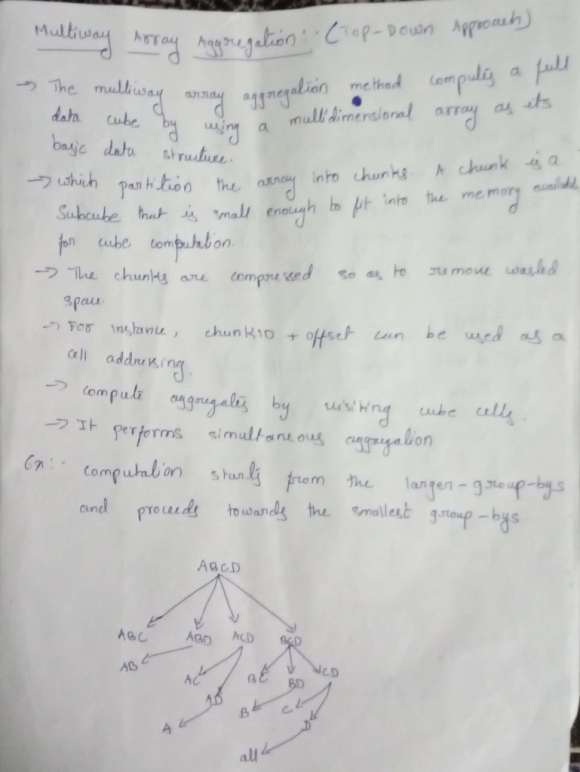 Multiway Array Aggregation:- (Top-Down Approach)
→ The multiway array aggregation method computes a full
data cube by using a multidimensional array as its
basic data structure.
→ which partition the array into chunks. A chunk is a
Subcube that is small enough to fit into the memory available
for cube computation.
→ The chunks are compressed so as to remove wasted
space.
→ For instance, chunkID + offset can be used as a
cell addressing.
→ compute aggregates by visiting cube cells.
→ It performs simultaneous aggregation
Ex:- computation starts from the larger-group-bys
and proceeds towards the smallest group-bys
ABCD
ABC ABD ACD BCD
AB AC AD BC BD CD
A B C D
all